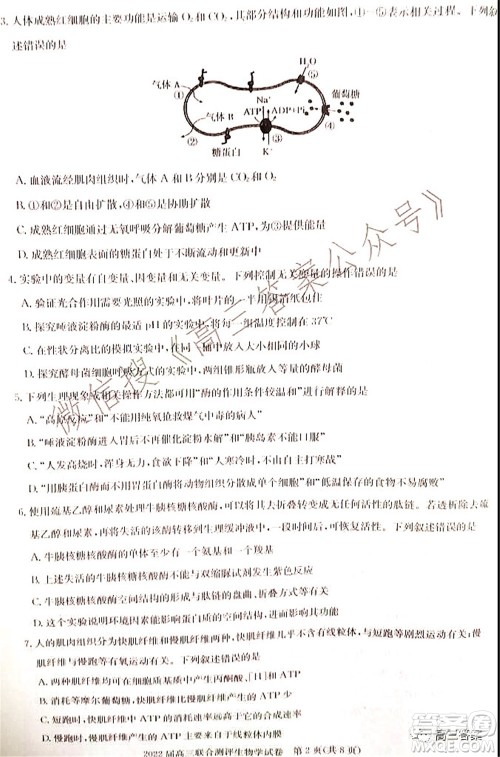 3. 人体成熟红细胞的主要功能是运输O₂和CO₂,其部分结构和功能如图,①—⑤表示相关过程。下列叙
述错误的是
H₂O
气体A
(1)
(5)
Na⁺
葡萄糖
ATP
ADP+Pi
气体B
(2)
(4)
糖蛋白
K⁺
A. 血液流经肌肉组织时,气体A和B分别是CO₂和O₂
B. ①和②是自由扩散,④和⑤是协助扩散
C. 成熟红细胞通过无氧呼吸分解葡萄糖产生ATP,为③提供能量
D. 成熟红细胞表面的糖蛋白处于不断流动和更新中
4. 实验中的变量有自变量、因变量和无关变量。下列控制无关变量的操作错误的是
A. 验证光合作用需要光照的实验中,将叶片的一半用锡箔纸包住
B. 探究唾液淀粉酶的最适pH的实验中,将每一组温度控制在37℃
C. 性状分离比的模拟实验中,在同一桶中放入两种大小相同的小球
D. 探究酵母菌细胞呼吸方式的实验中,两组锥形瓶放入等量的酵母菌
5. 下列生理现象或相关操作方法都可以用"酶的作用条件较温和"进行解释的是
A. "高原反应"和"不能用纯氧抢救煤气中毒的病人"
B. "唾液淀粉酶进入胃后不再催化淀粉水解"和"胰岛素不能口服"
C. "人发高烧时,浑身无力,食欲下降"和"人生病时,不由自主打寒战"
D. "用胰蛋白酶而不用胃蛋白酶将动物组织分散成单个细胞"和"低温保存的食物不易腐败"
6. 使用巯基乙醇和尿素处理牛胰核糖核酸酶,可以将其去折叠转变成无任何活性的肽链。若透析除去巯
基乙醇和尿素,再将没有活性的酶转移到生理缓冲液中,一段时间后,可恢复其活性。下列叙述错误
的是
A. 牛胰核糖核酸酶至少含有一个氨基和一个羧基
B. 上述失活的牛胰核糖核酸酶不能与双缩脲试剂发生紫色反应
C. 牛胰核糖核酸酶空间结构的形成与肽链的盘曲、折叠方式有关
D. 这一实验现象说明,牛胰核糖核酸酶变性后空间结构的改变是可逆的
7. 人的肌肉组织分为快肌纤维和慢肌纤维两种,快肌纤维几乎不含有线粒体,与短跑等剧烈运动有关;慢
肌纤维与慢跑等有氧运动有关。下列叙述错误的是
A. 两种肌纤维均可在细胞质基质中产生丙酮酸、[H]和ATP
B. 消耗等摩尔葡萄糖,快肌纤维比慢肌纤维产生的ATP少
C. 短跑时,快肌纤维无氧呼吸产生大量乳酸
D. 慢跑时,慢肌纤维产生的ATP主要来自于线粒体
2022届高三联合测评生物学试卷 第2页(共8页)
微信搜《高三答案公众号》
高三答案